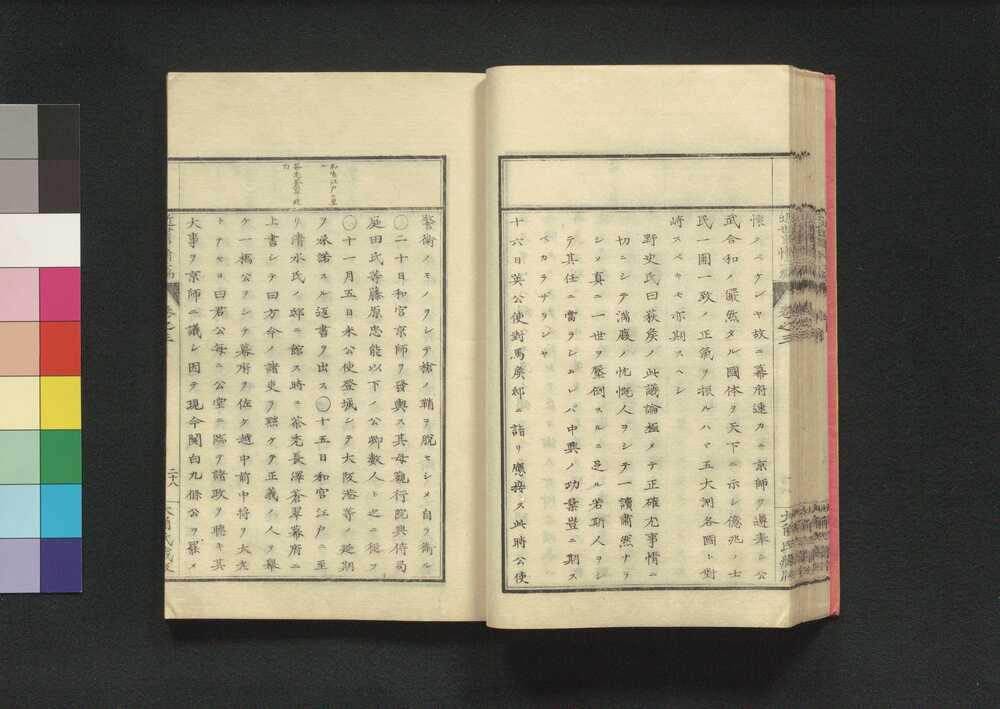 懐ノベケンヤ故ニ幕府速カニ京師ヲ遵奉シ公
武合和ノ嚴然タル國体ヲ天下ニ示シ億兆ノ士
民一團一致ノ正氣ヲ振ルハヾ五大洲各國ト對
峙スベキモ亦期スヘシ
野史氏曰荻矦ノ此議論極メテ正確尤事情ニ
切ニシテ満廢ノ忼慨人ヲシテ一讀肅然ナラ
シメ真ニ一世ヲ壓倒スルニ足ル若斯人ヲシ
テ其任ニ當ラシムレバ中興ノ功業豈ニ期ス
ベカラザランヤ
十六日英公使對馬矦邸ニ詣リ應接ス此時公使
警衛ノモノヲシテ槍ノ鞘ヲ脱セシメ自ラ衛ル
〇二十日和官京師ヲ發輿ス其母觀行院與侍局
庭田氏等藤原忠能以下ノ公卿數人ト之ニ從フ
〇十一月五日米公使登城シテ大阪港等ノ延期
ヲ承諾スル返書ヲ出ス〇十五日和宮江戸ニ至
リ清水氏ノ邸ニ館ス時ニ茶道長澤蒼翠幕府ニ
上書シテ曰方今ノ諸吏ヲ黜ケテ正義ノ人ヲ舉
ケ一橋公ヲシテ幕府ヲ佐ケ越中前中将ヲ太夫
トナセヨ曰君公毎ニ公堂ニ臨テ諸政ヲ聴キ其
大事ヲ京師ニ議シ因テ現今関白九條公ヲ罷メ
和宮江戸ニ至
二十八